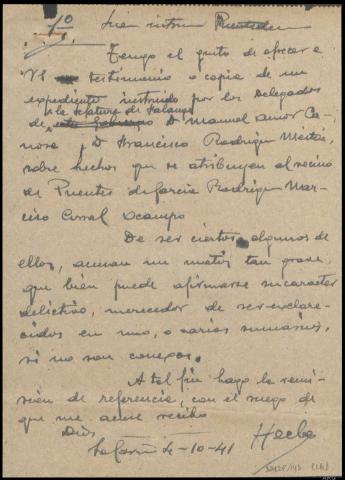 Juez instruc Puentedeume
Tengo el gusto de ofrecer a
Vl testimonio o copia de un
expediente instruido por los Delegados
a la Jefatura de Falange
de este Gobierno D Manuel Amor Ca-
nosa y D Francisco Rodriguez
sobre hechos que se atribuyen al vecino
de Puentes de Garcia Rodriguez Nar-
ciso Corral Ocampo
De ser ciertos algunos de
ellos, acusan un matiz tan grave
que bien puede afirmarse su caracter
delictivo, merecedor de ser esclare-
cidos en uno, o varios sumarios,
si no son conexos.
A tal fin hago la remi-
sion de referencia, con el ruego de
que me acuse recibo
Dios
4-10-41 Hecho